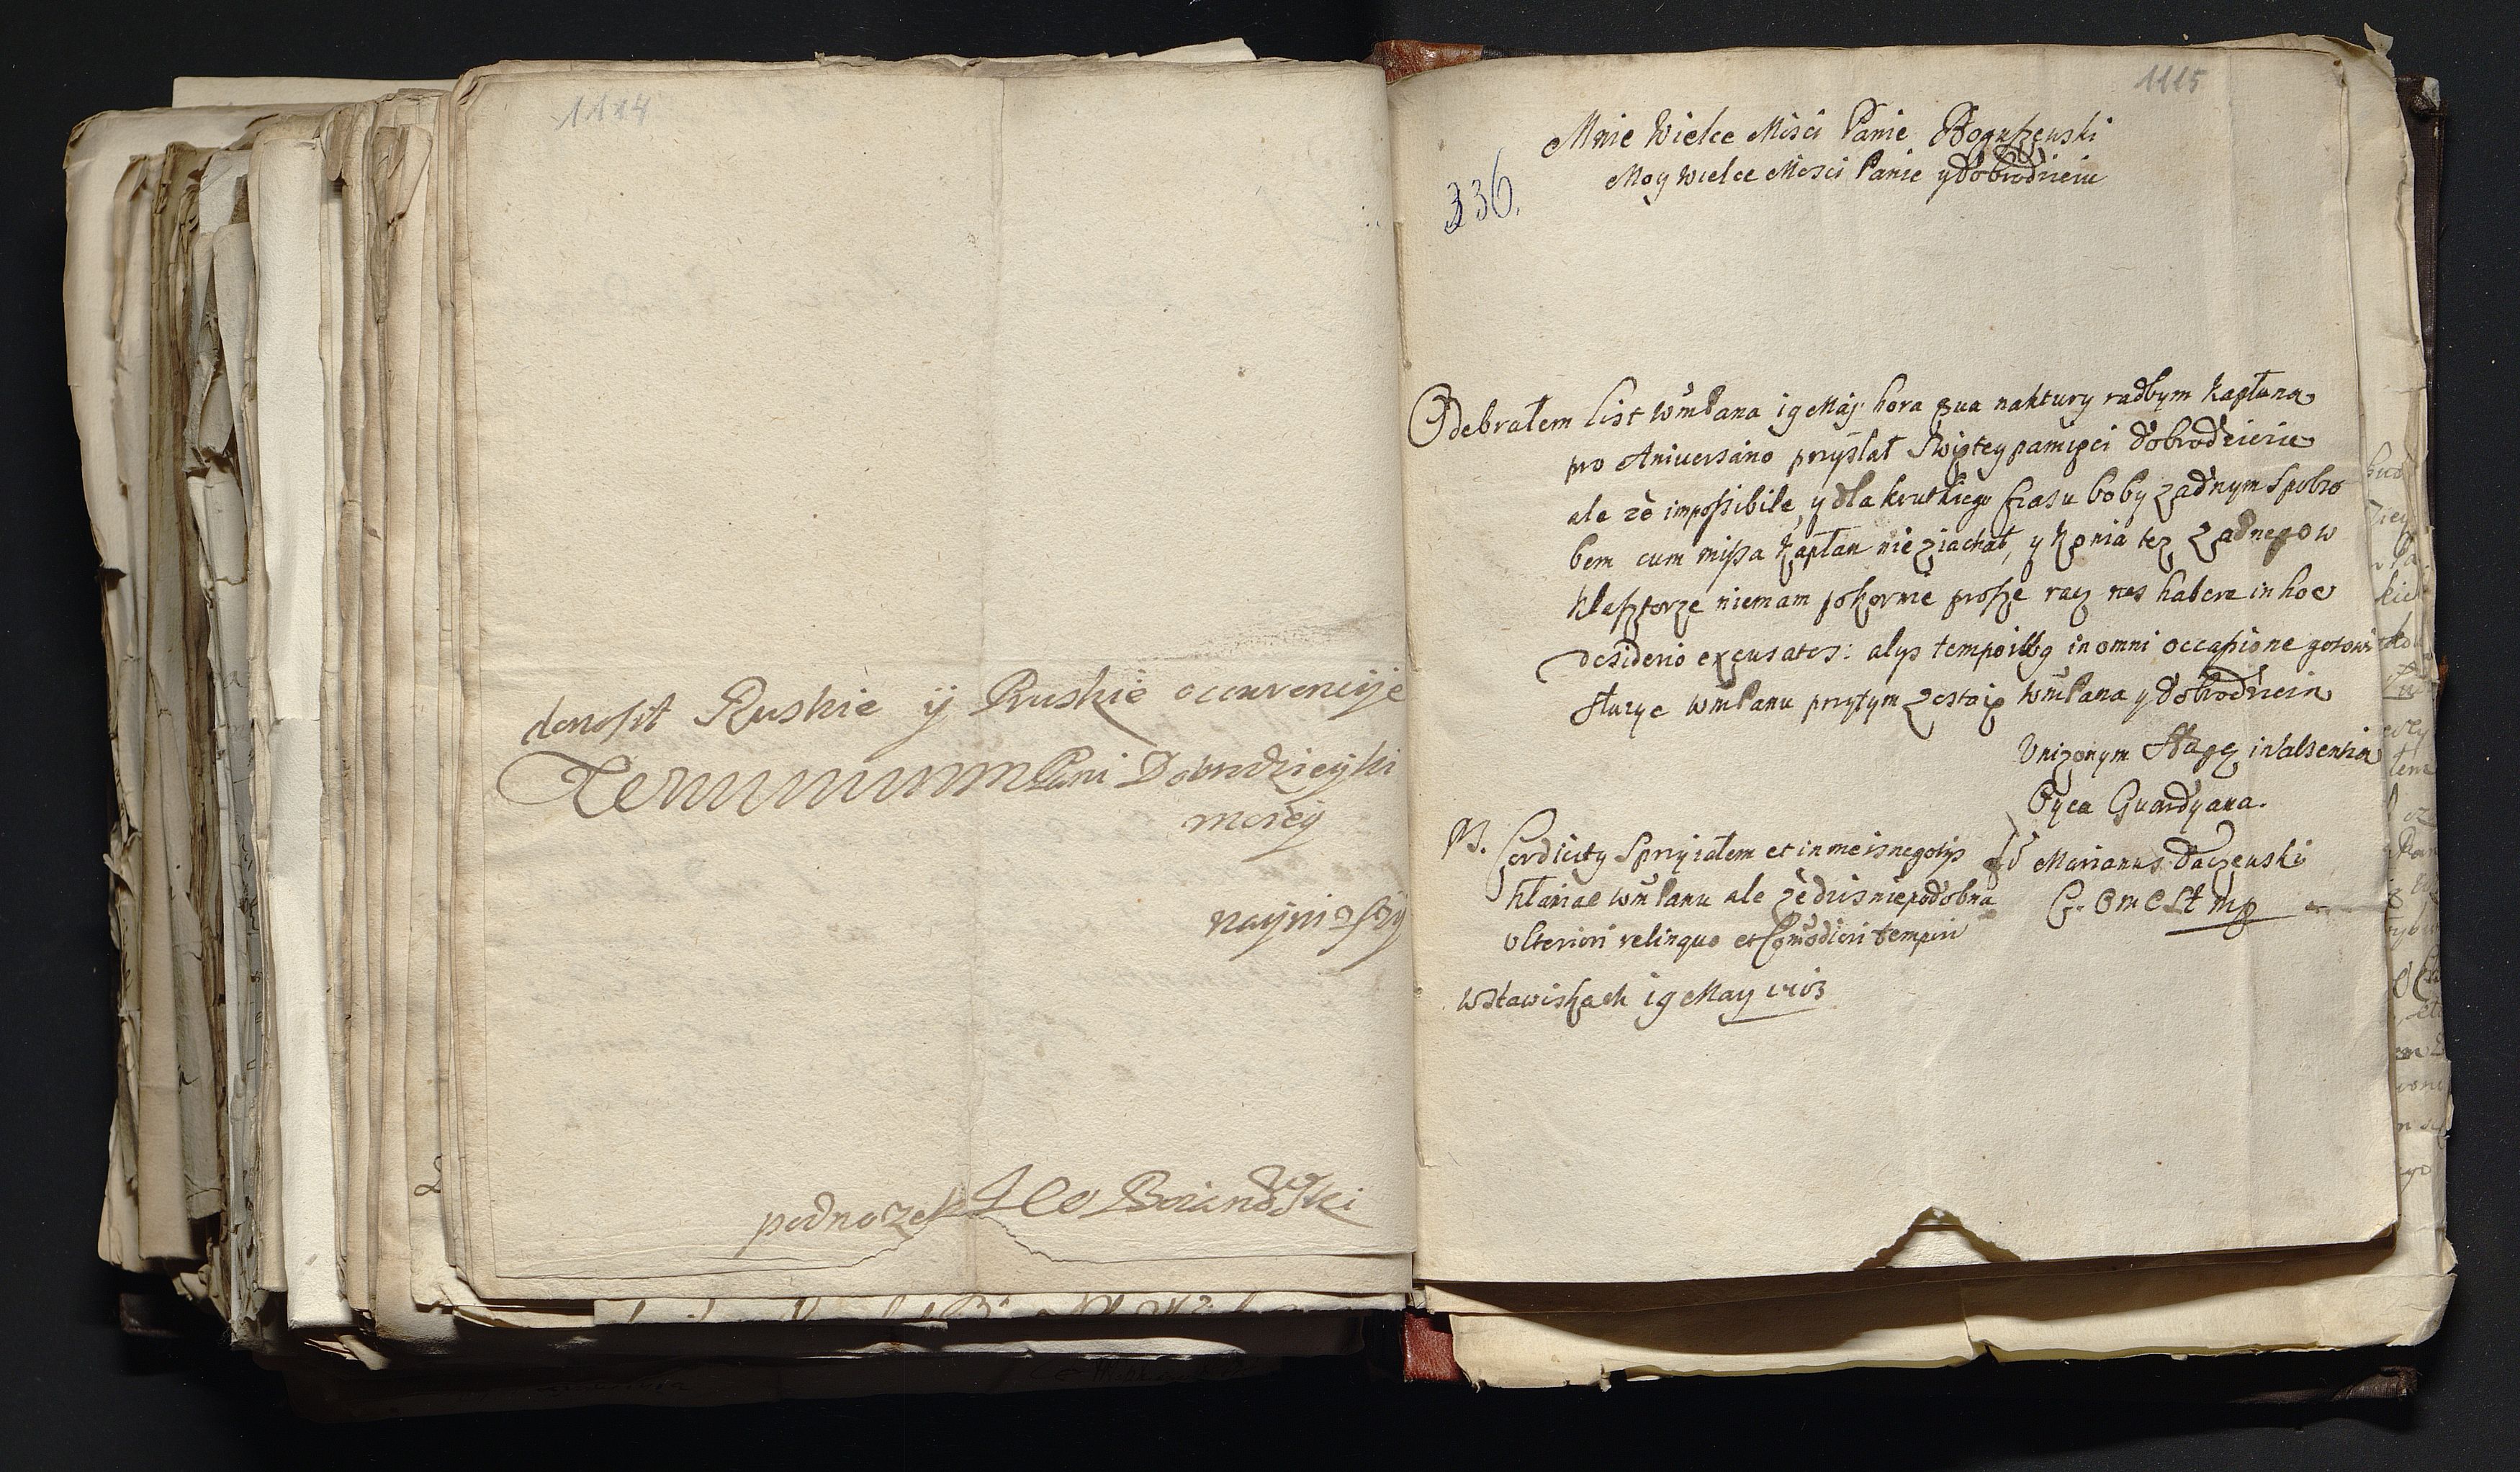 1114
donosit Ruskie ÿ Pruskie occurencÿe
WMM Pani Dobrodzieÿki
moieÿ
naÿniższÿ
podnożek Boianowski
1115
336.
Mnie Wielce Mosci Panie Boguszewski
Moy Wielce Mosci Panie y Dobrodzieiu
Odebrałem List WmPana 19 Maÿ hora qua naktury radbym kapłana
pro Aniuersario przysłał Swiętey pamięci dobrodzieiu
ale ze impossibile, y dla krutkiego czasu bo by zadnym Sposo
bem cum missa kapłan nie ziachał, y konia tez zadnego w
klasztorze niemam pokornie prosze racz nos habere in hoc
desiderio excusatos: alys temporibg in omni occasione gotowi
słuzyc WmPanu przytym zostaię WmPana y dobrodzieia
Unizonym Sługą in absentia
Oyca Guardyana.
fr Marianus
G. Omelst mp
NB. Serdicity Sprzyiałem et in meis negotys
kłaniac WmPanu ale ze dzis niepodobna
Ulteriori relinquo et Comodiori tempori
w Stawiskach 19 May 1703